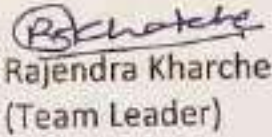 RsKharche
Rajendra Kharche
(Team Leader)